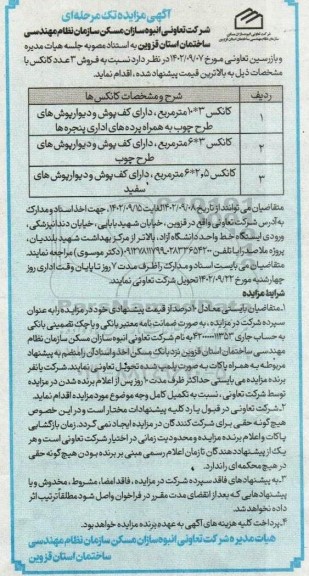 آگهی مزایده تک مرحله ای
شرکت تعاونی انبوه سازان مسکن سازمان نظام مهندسی
ساختمان استان قزوین به استناد مصوبه جلسه هیات مدیره
و بازرسین تعاونی مورخ ۱۴۰۲/۰۹/۰۷ در نظر دارد نسبت به فروش ۳ عدد کانکس با
مشخصات ذیل به بالاترین قیمت پیشنهاد شده، اقدام نماید.
ردیف شرح و مشخصات کانکس ها
۱ کانکس ۳*۱۰ مترمربع، دارای کف پوش و دیوارپوش های
طرح چوب به همراه پرده های اداری پنجره ها
۲ کانکس ۳*۶ مترمربع، دارای کف پوش و دیوارپوش های
طرح چوب
۳ کانکس ۲,۵*۶ مترمربع، دارای کف پوش و دیوارپوش های
سفید
متقاضیان می توانند از تاریخ ۱۴۰۲/۰۹/۰۸ لغایت ۱۴۰۲/۰۹/۱۵ جهت اخذ اسناد و مدارک
به آدرس شرکت تعاونی واقع در قزوین، خیابان شهید بابایی، خیابان دندانپزشکی،
ورودی ایستگاه خط واحد دانشگاه آزاد، بالاتر از مرکز بهداشت شهید بلندیان،
پروژه ملاصدرا با تلفن (دکتر موسوی) مراجعه نمایند.
متقاضیان می بایست اسناد و مدارک را ظرف مدت ۷ روز تا پایان وقت اداری روز
چهارشنبه مورخ ۱۴۰۲/۰۹/۲۲ تحویل شرکت تعاونی نمایند.
شرایط مزایده
۱.متقاضیان بایستی معادل ۱۰ درصد از قیمت پیشنهادی خود در مزایده را به عنوان
سپرده شرکت در مزایده، به صورت ضمانت نامه معتبر بانکی و یا چک تضمینی بانکی
به حساب جاری به نام شرکت تعاونی انبوه سازان مسکن سازمان نظام
مهندسی ساختمان استان قزوین نزد بانک مسکن اخذ و اسناد آن را منضم به پیشنهاد
مربوطه به همراه پاکات به صورت پلمپ شده تحویل تعاونی نمایند. شرکت یا نفر
برنده مزایده می بایستی حداکثر ظرف مدت ۱۰ روز پس از اعلام برنده شدن در مزایده
توسط شرکت تعاونی، نسبت به تکمیل کامل وجه موضوع مورد مزایده اقدام نماید.
۲.شرکت تعاونی در قبول یا رد کلیه پیشنهادات مختار است و در این خصوص
هیچ گونه حقی برای شرکت کنندگان در مزایده ایجاد نمی گردد. زمان بازگشایی
پاکات و اعلام برنده مزایده و محدودیت زمانی در اختیار شرکت تعاونی است و هر
یک از پیشنهاددهندگان تا زمان اعلام رسمی مبنی بر برنده بودن هیچ گونه حقی
در هیچ محکمه ای را ندارد.
۳.به پیشنهادهای فاقد سپرده شرکت در مزایده، فاقد امضا، مشروط، مخدوش و یا
پیشنهادهایی که بعد از انقضای مدت مقرر در فراخوان واصل شود مطلقا ترتیب اثر
داده نخواهد شد.
۴.پرداخت کلیه هزینه های آگهی به عهده برنده مزایده خواهد بود.
هیات مدیره شرکت تعاونی انبوه سازان مسکن سازمان نظام مهندسی
ساختمان استان قزوین